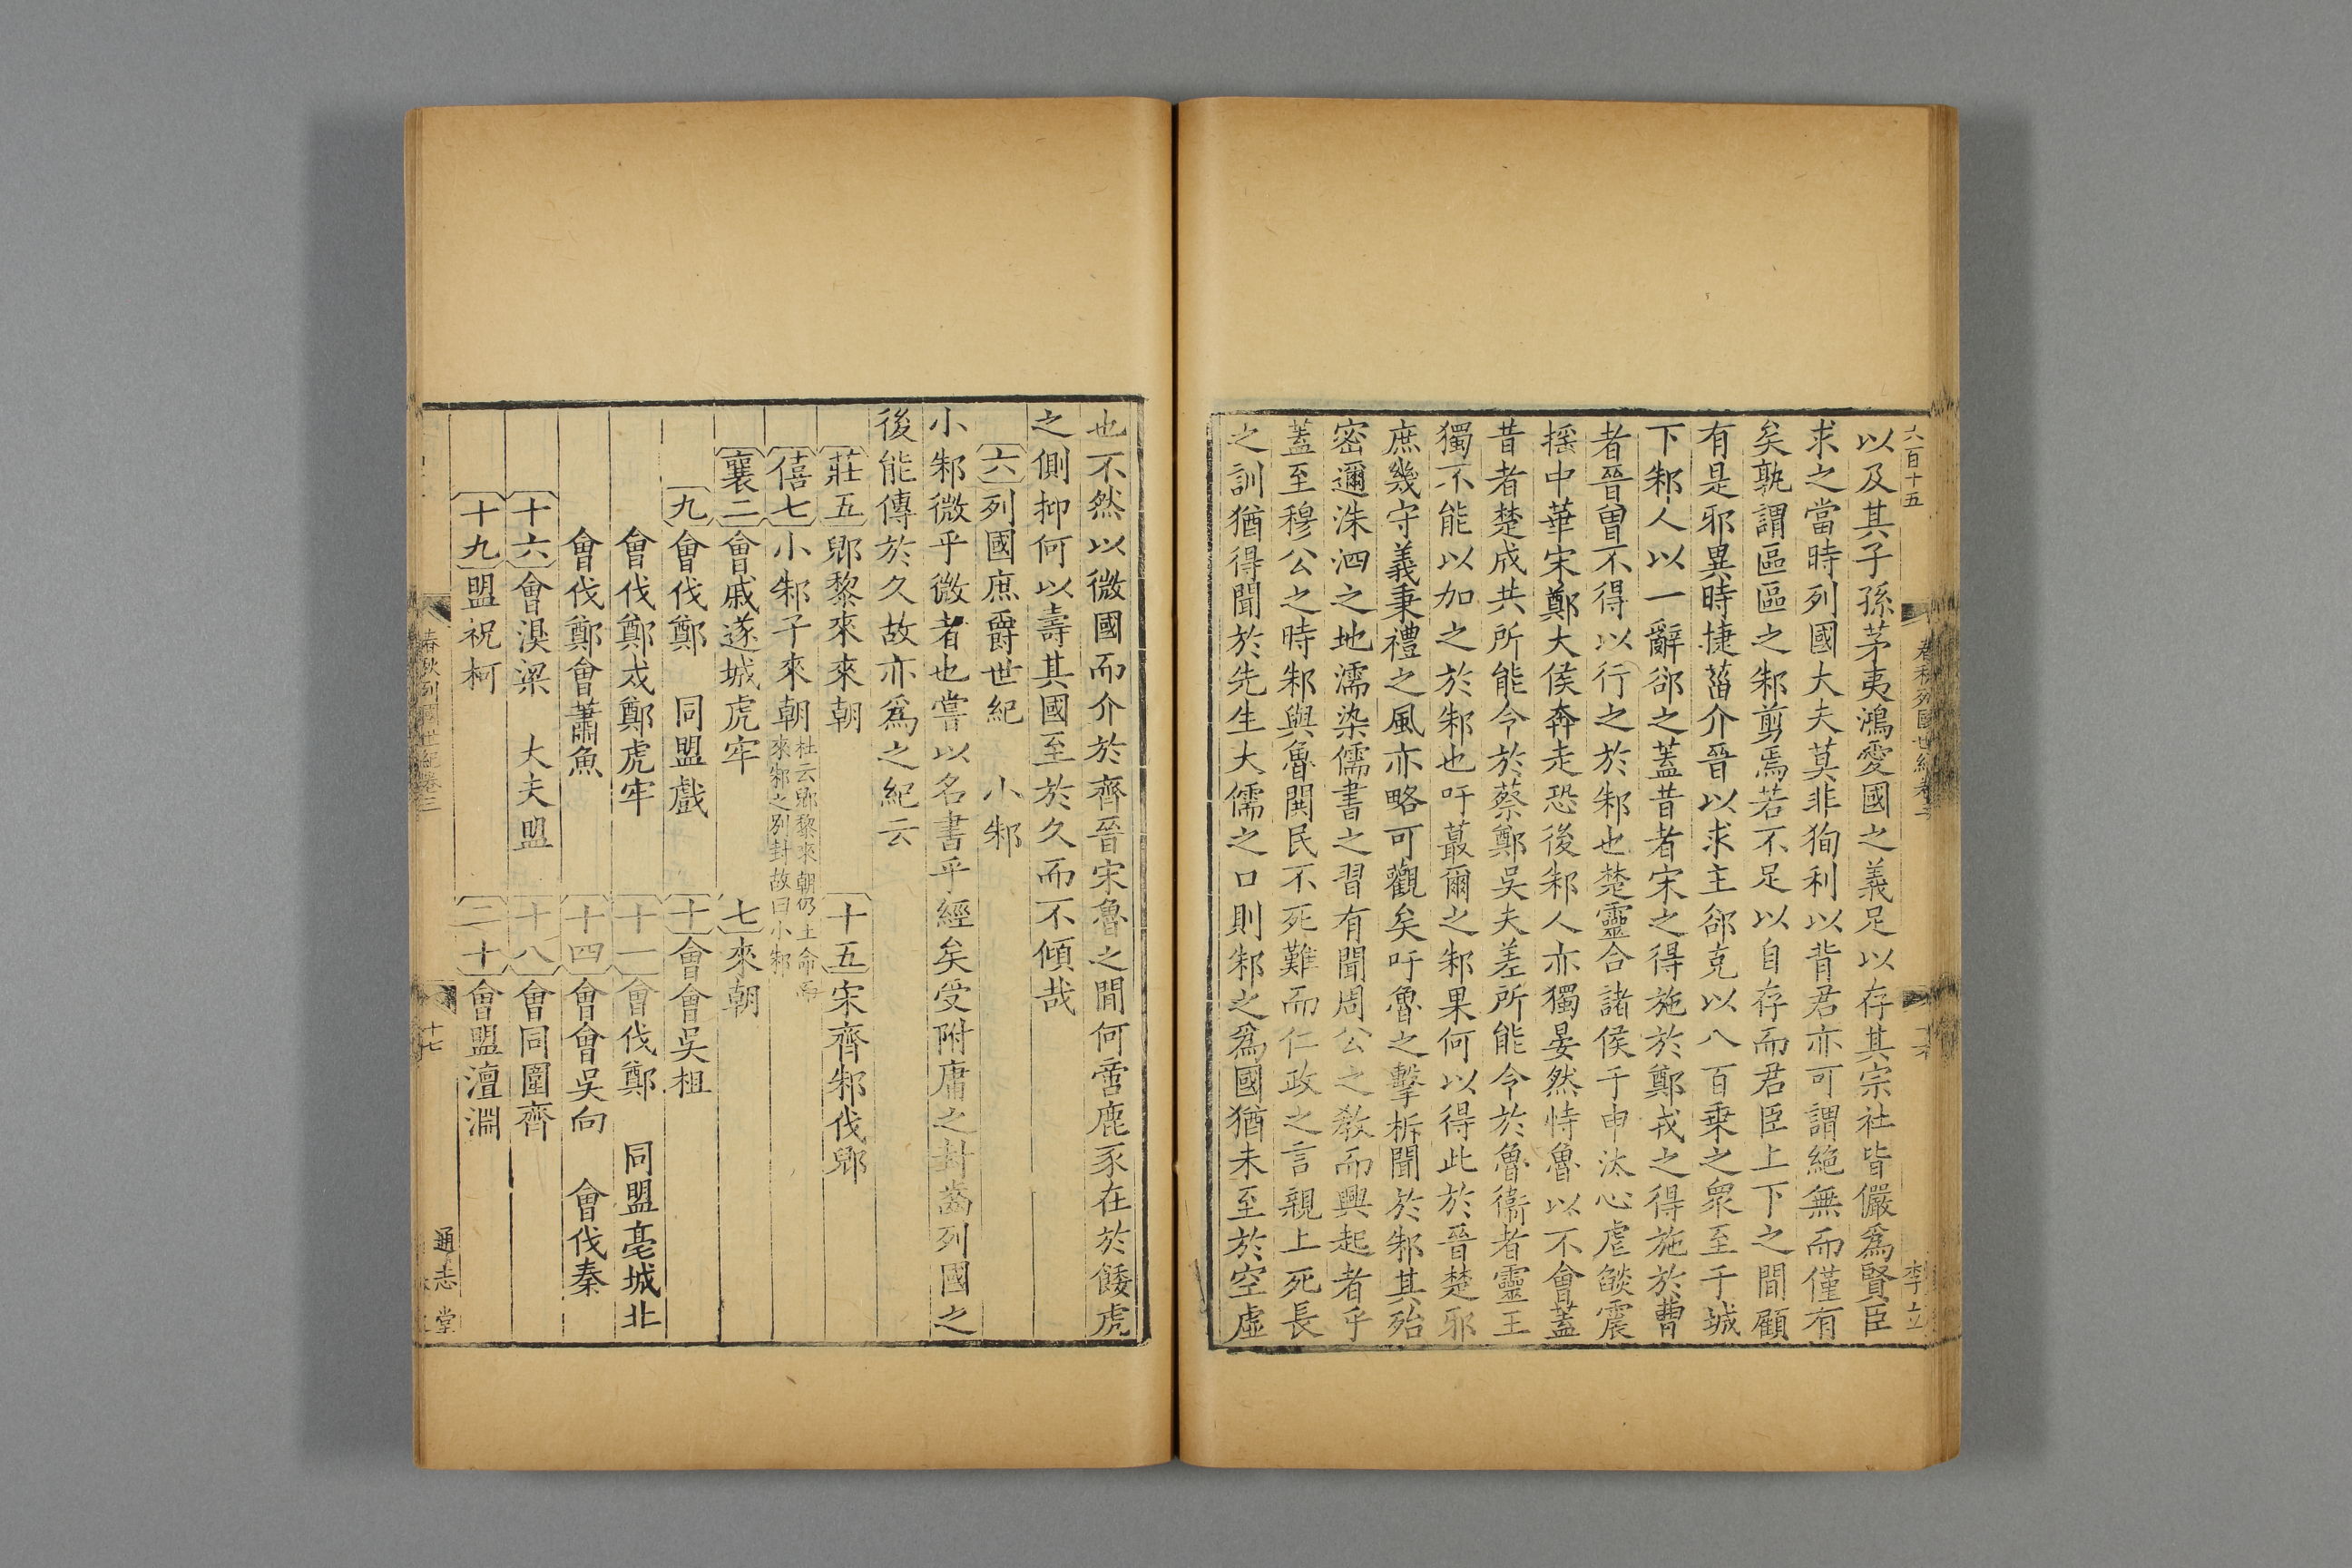 六百十五
以及其子孫茅夷鴻愛國之義足以存其宗社皆儼爲賢臣
求之當時列國大夫莫非狥利以背君亦可謂絕無而僅有
矣孰謂區區之邾剪焉若不足以自存而君臣上下之間顧
有是邪異時捷菑介晉以求主郤克以八百乗之衆至于城
下邾人以一辭郤之蓋昔者宋之得施於鄭戎之得施於曹
者晉曽不得以行之於邾也楚靈合諸侯于申汰心虐燄震
摇中華宋鄭大侯奔走恐後邾人亦獨晏然恃魯以不會蓋
昔者楚成共所能令於蔡鄭吳夫差所能令於魯衞者靈王
獨不能以加之於邾也吁蕞爾之邾果何以得此於晉楚邪
庶幾守義秉禮之風亦略可觀矣吁魯之擊柝聞於邾其殆
密邇洙泗之地濡染儒書之習有聞周公之教而興起者乎
蓋至穆公之時邾與魯鬨民不死難而仁政之言親上死長
之訓猶得聞於先生大儒之口則邾之爲國猶未至於空虛
春秋列國世紀卷三
李立
也不然以微國而介於齊晉宋魯之間何啻鹿豕在於餧虎
之側抑何以壽其國至於久而不傾哉
六列國庶爵世紀 小邾
小邾微乎微者也嘗以名書乎經矣受附庸之封齒列國之
後能傳於久故亦爲之紀云
莊五郳黎來來朝 十五宋齊邾伐郳
僖七小邾子來朝杜云郳黎來朝仍王命而
來邾之別封故曰小邾
襄二會戚遂城虎牢 七來朝
九會伐鄭 同盟戲 十會會吳柤
會伐鄭戍鄭虎牢 十一會伐鄭 同盟亳城北
會伐鄭會蕭魚 十四會會吳向 會伐秦
十六會湨梁 大夫盟 十八會同圍齊
十九盟祝柯 二十會盟澶淵
春秋列國世紀卷三
十七
通志堂